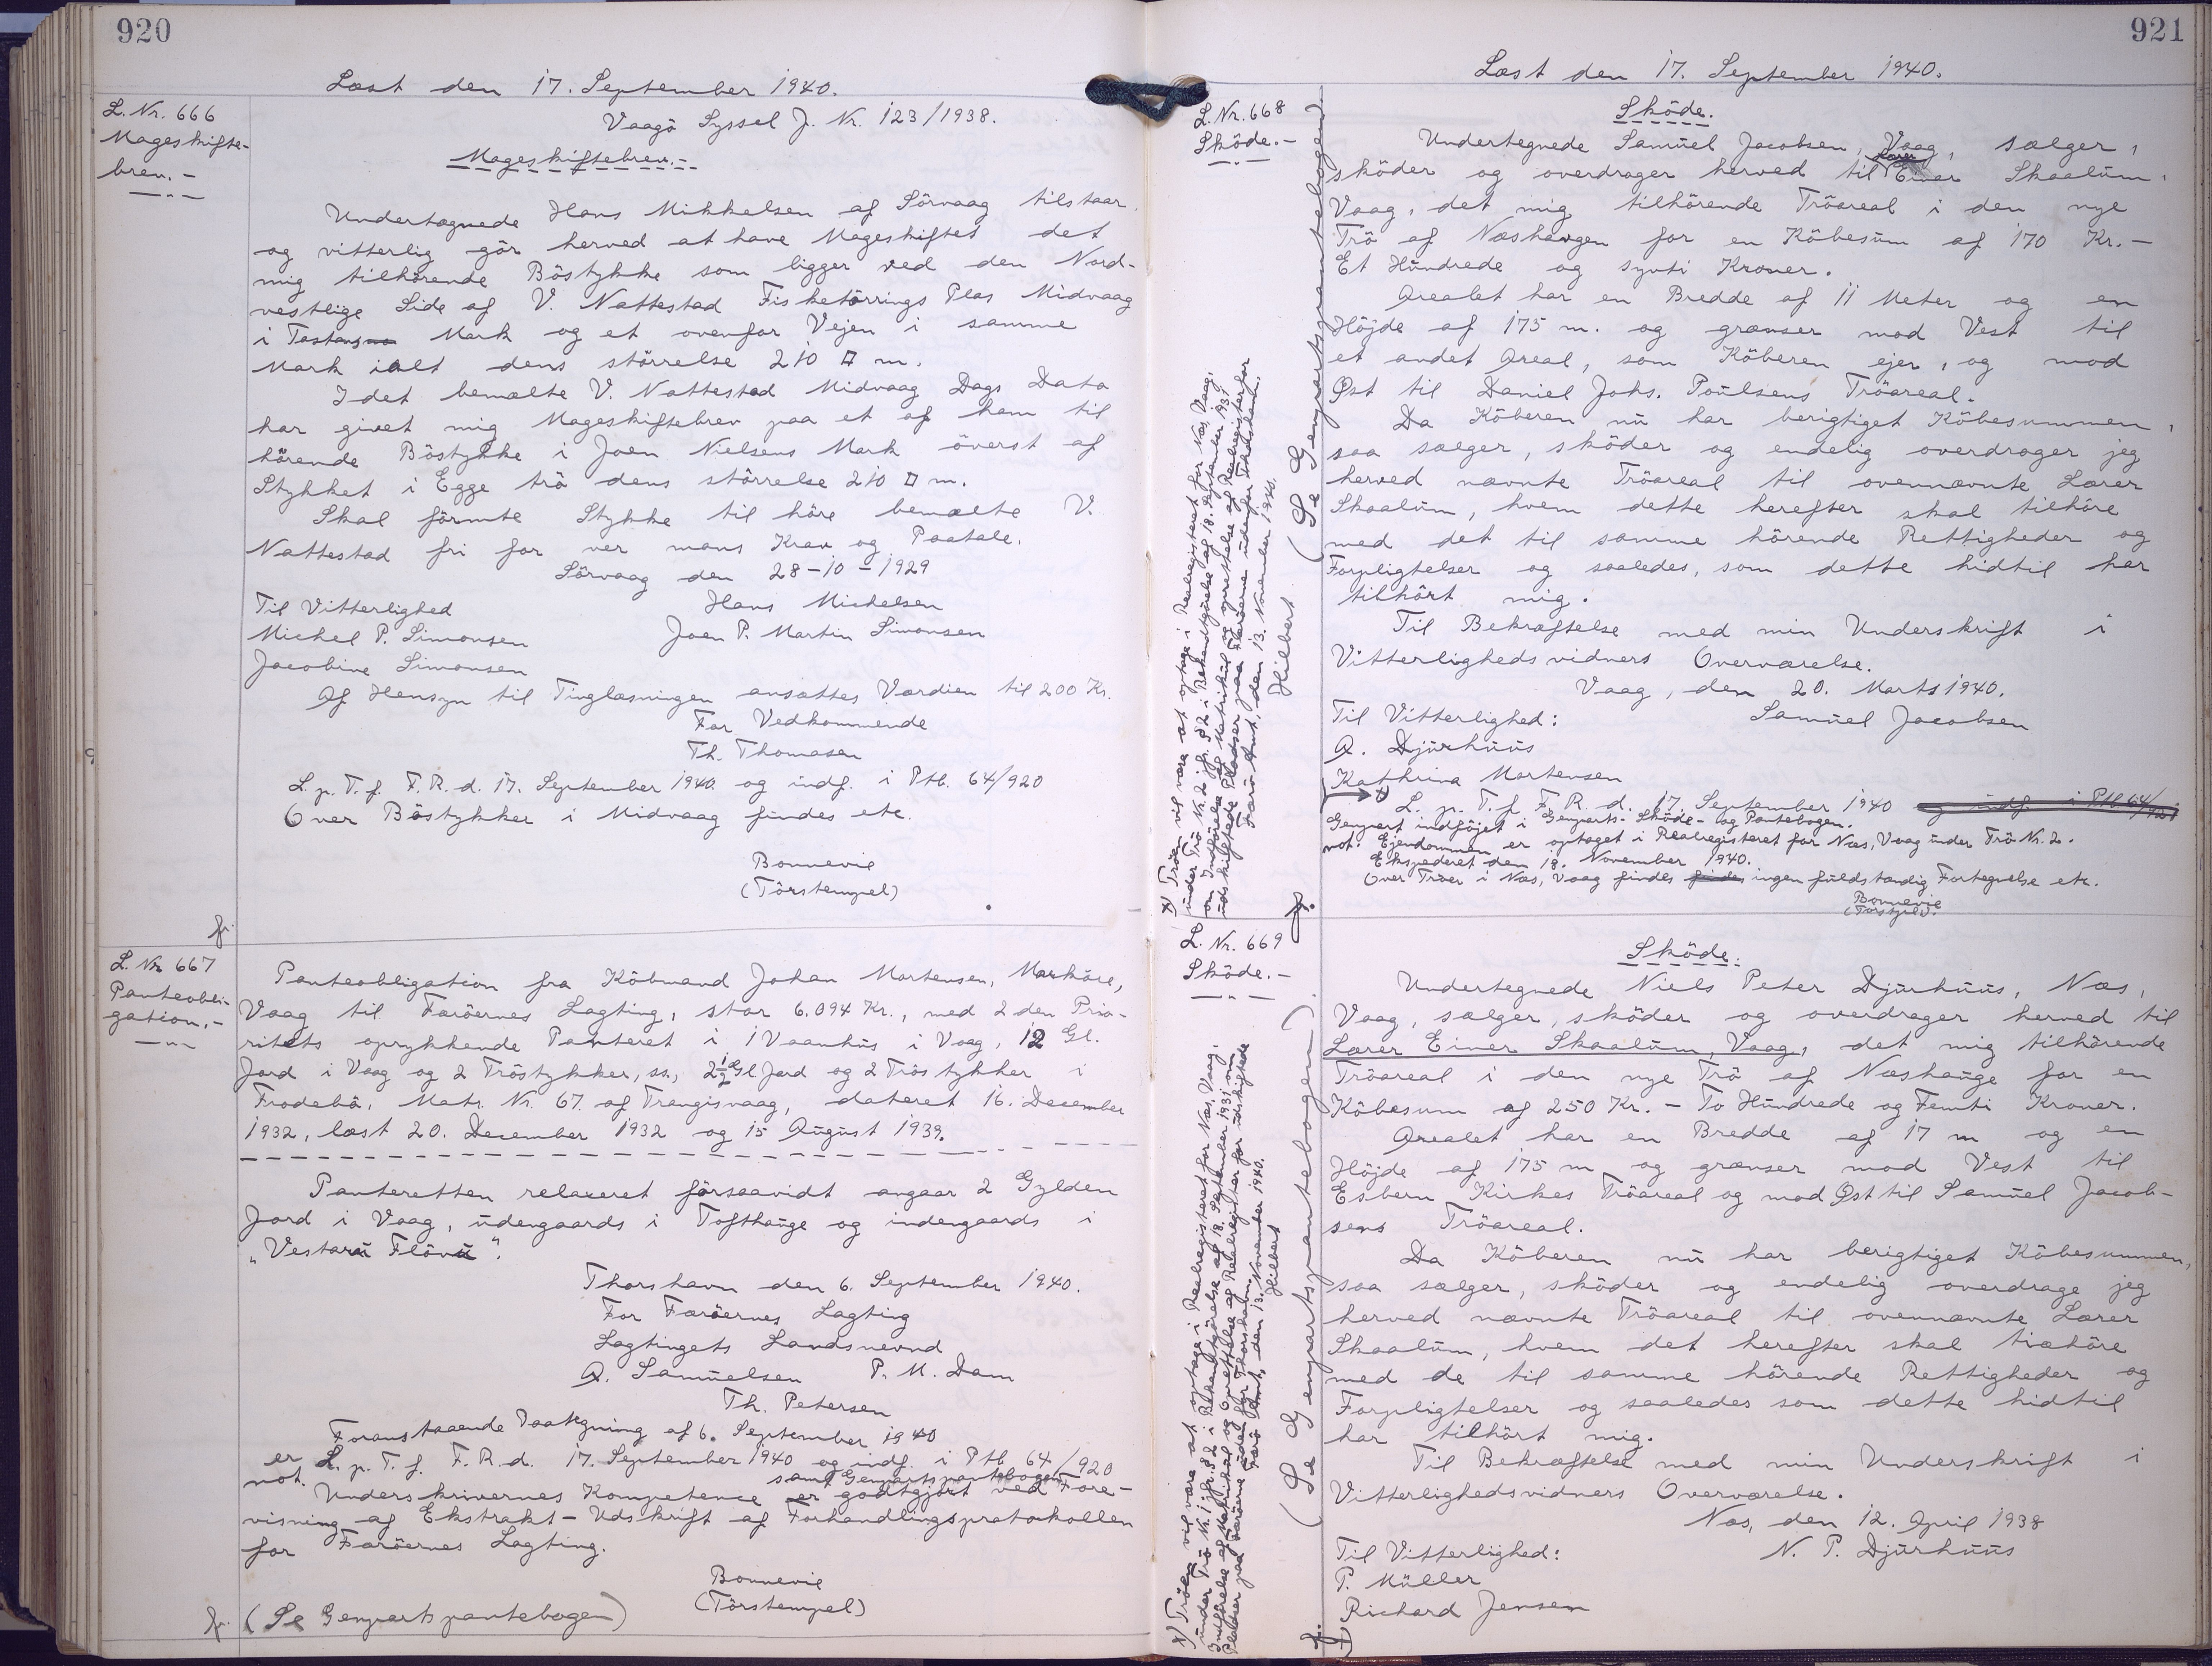 920
Læst den 17. September 1940.
L. Nr. 666
Mageskifte-
brev.-
Vaagö Syssel J. Nr. 123/1938.
Mageskiftebrev.-
Undertegnede Hans Mikkelsen af Sörvaag tilstaar
og vitterlig gör herved at have Mageskiftet det
mig tilhörende Böstykke som ligger ved den Nord-
vestlige Side af V. Nattestad Fisketörrings Plas Midvaag
i Mark og et ovenfor Vejen i samme
Mark ialt dens störrelse 210 □ m.
Idet bemælte V. Nattestad Midvaag Dags Data
har givet mig Mageskiftebrev paa et af ham til
hörende Böstykke i Joen Nielsens Mark överst af
Stykket i Egge trö dens störrelse 210 □ m.
Skal förnnte Stykke til höre bemælte V.
Nattestad fri for ver mans Krav og Paatale.
Sörvaag den 28-10-1929
Til Vitterlighed Hans Michelsen
Michel P. Simonsen Joen P. Martin Simonsen
Jacobine Simonsen
Af Hensyn til Tinglæsningen ansættes Værdien til 200 Kr.
For Vedkommende
Th. Thomasen
L. p. T. f. F. R. d. 17. September 1940 og indf. i Ptb. 64/920
Over Böstykker i Midvaag findes etc.
Bonnevie
(Törstempel)
fr.
L. Nr 667
Panteobli-
gation.-
Panteobligation fra Köbmand Johan Mortensen, Marköre,
Vaag til Færöernes Lagting, stor 6.094 Kr., med 2den Prio-
ritets oprykkende Panteret i 1 Vaanhus i Vaag, 12 Gl.
Jord i Vaag og 2 Tröstykker, ss., 2½ Gl Jord og 2 Tröstykker i
Frodebö, Matr. Nr. 67 af Trangisvaag, dateret 16. December
1932, læst 20. December 1932 og 15 August 1939.
Panteretten relaxeret försaavidt angaar 2 Gylden
Jord i Vaag, udengaards i Tofthauge og indengaards i
"Vestaru Flövu".
Thorshavn den 6. September 1940.
For Færöernes Lagting
Lagtingets Landsnevnd
A. Samuelsen P. M. Dam
Th. Petersen
Foranstaaende Paategning af 6. September 1940
er L. p. T. f. F. R. d. 17. September 1940 og indf. i Ptb 64/920
not. samt Genpartspantebogen
Underskrivernes Kompetence er godtgjort ved Fore-
visning af Ekstrakt-Udskrift af Forhandlingsprotokollen
for Færöernes Lagting.
Bonnevie
(Törstempel)
fr. (Se Genpartspantebogen)
921
Læst den 17. September 1940.
L. Nr. 668
Sköde.-
Sköde.
Undertegnede Samuel Jacobsen, Vaag, sælger,
sköder og overdrager herved til Lærer Einar Skaalum,
Vaag, det mig tilhörende Tröareal i den nye
Trö af Næshavgen for en Köbesum af 170 Kr.-
Et Hundrede og synti Kroner.
Arealet har en Bredde af 11 Meter og en
Höjde af 175 m. og grænser mod Vest til
et andet Areal, som Köberen ejer, og mod
Øst til Daniel Johs. Poulsens Tröareal.
Da Köberen nu har berigtiget Köbesummen,
saa sælger, sköder og endelig overdrager jeg
herved nævnte Tröareal til ovennævnte Lærer
Skaalum, hvem dette herefter skal tilhöre
med det til samme hörende Rettigheder og
Forpligtelser og saaledes, som dette hidtil har
tilhört mig.
Til Bekræftelse med min Underskrift i
Vitterlighedsvidners Overværelse.
Vaag, den 20. Marts 1940.
Til Vitterlighed: Samuel Jacobsen
A. Djurhuus
Kathrina Mortensen
x) L. p. T. f. F. R. d. 17. September 1940 og indf. i Ptb. 64/921
Genpart indföjet i Genparts-Sköde- og Pantebogen.
not. Ejendommen er optaget i Realregisteret for Næs, Vaag under Trö Nr. 2.
Ekspederet den 18. November 1940.
Over Tröer i Næs, Vaag findes findes ingen fuldstændig Fortegnelse etc.
Bonnevie
x) Tröen vil være at optage i Realregisteret for Næs, Vaag,
under Trö Nr. 2 jfr. § 2 i Bekendtgörelse af 18. September 1931
om Indförelse af Matrikul og oprettelse af Realregister for
udskiftede Pladser paa Færöerne udenfor Thorshavn.
Færö Amt, den 13. November 1940.
Hilbert
(Se Genpartspantebogen)
fr.
L. Nr. 669
Sköde.-
Sköde.
Undertegnede Niels Peter Djurhuus, Næs,
Vaag, sælger, sköder og overdrager herved til
Lærer Einer Skaalum, Vaag, det mig tilhörende
Tröareal i den nye Trö af Næshauge for en
Köbesum af 250 Kr.- To Hundrede og Femti Kroner.
Arealet har en Bredde af 17 m og en
Höjde af 175 m og grænser mod Vest til
Esbern Kirkes Tröareal og mod Øst til Samuel Jacob-
sens Tröareal.
Da Köberen nu har berigtiget Köbesummen,
saa sælger, sköder og endelig overdrage jeg
herved nævnte Tröareal til ovennævnte Lærer
Skaalum, hvem det herefter skal tilhöre
med de til samme hörende Rettigheder og
Forpligtelser og saaledes som dette hidtil
har tilhört mig.
Til Bekræftelse med min Underskrift i
Vitterlighedsvidners Overværelse.
Næs, den 12. April 1938
Til Vitterlighed: N. P. Djurhuus
P. Müller
Richard Jensen
x) Tröen vil være at optage i Realregisteret for Næs, Vaag,
under Trö Nr. 1 jfr. § 2 i Bekendtgörelse af 18. September 1931 om
Indförelse af Matrikul og Oprettelse af Realregister for udskiftede
Pladser paa Færöerne udenfor Thorshavn.
Færö Amt, den 13. November 1940.
Hilbert
(Se Genpartspantebogen)
fr.